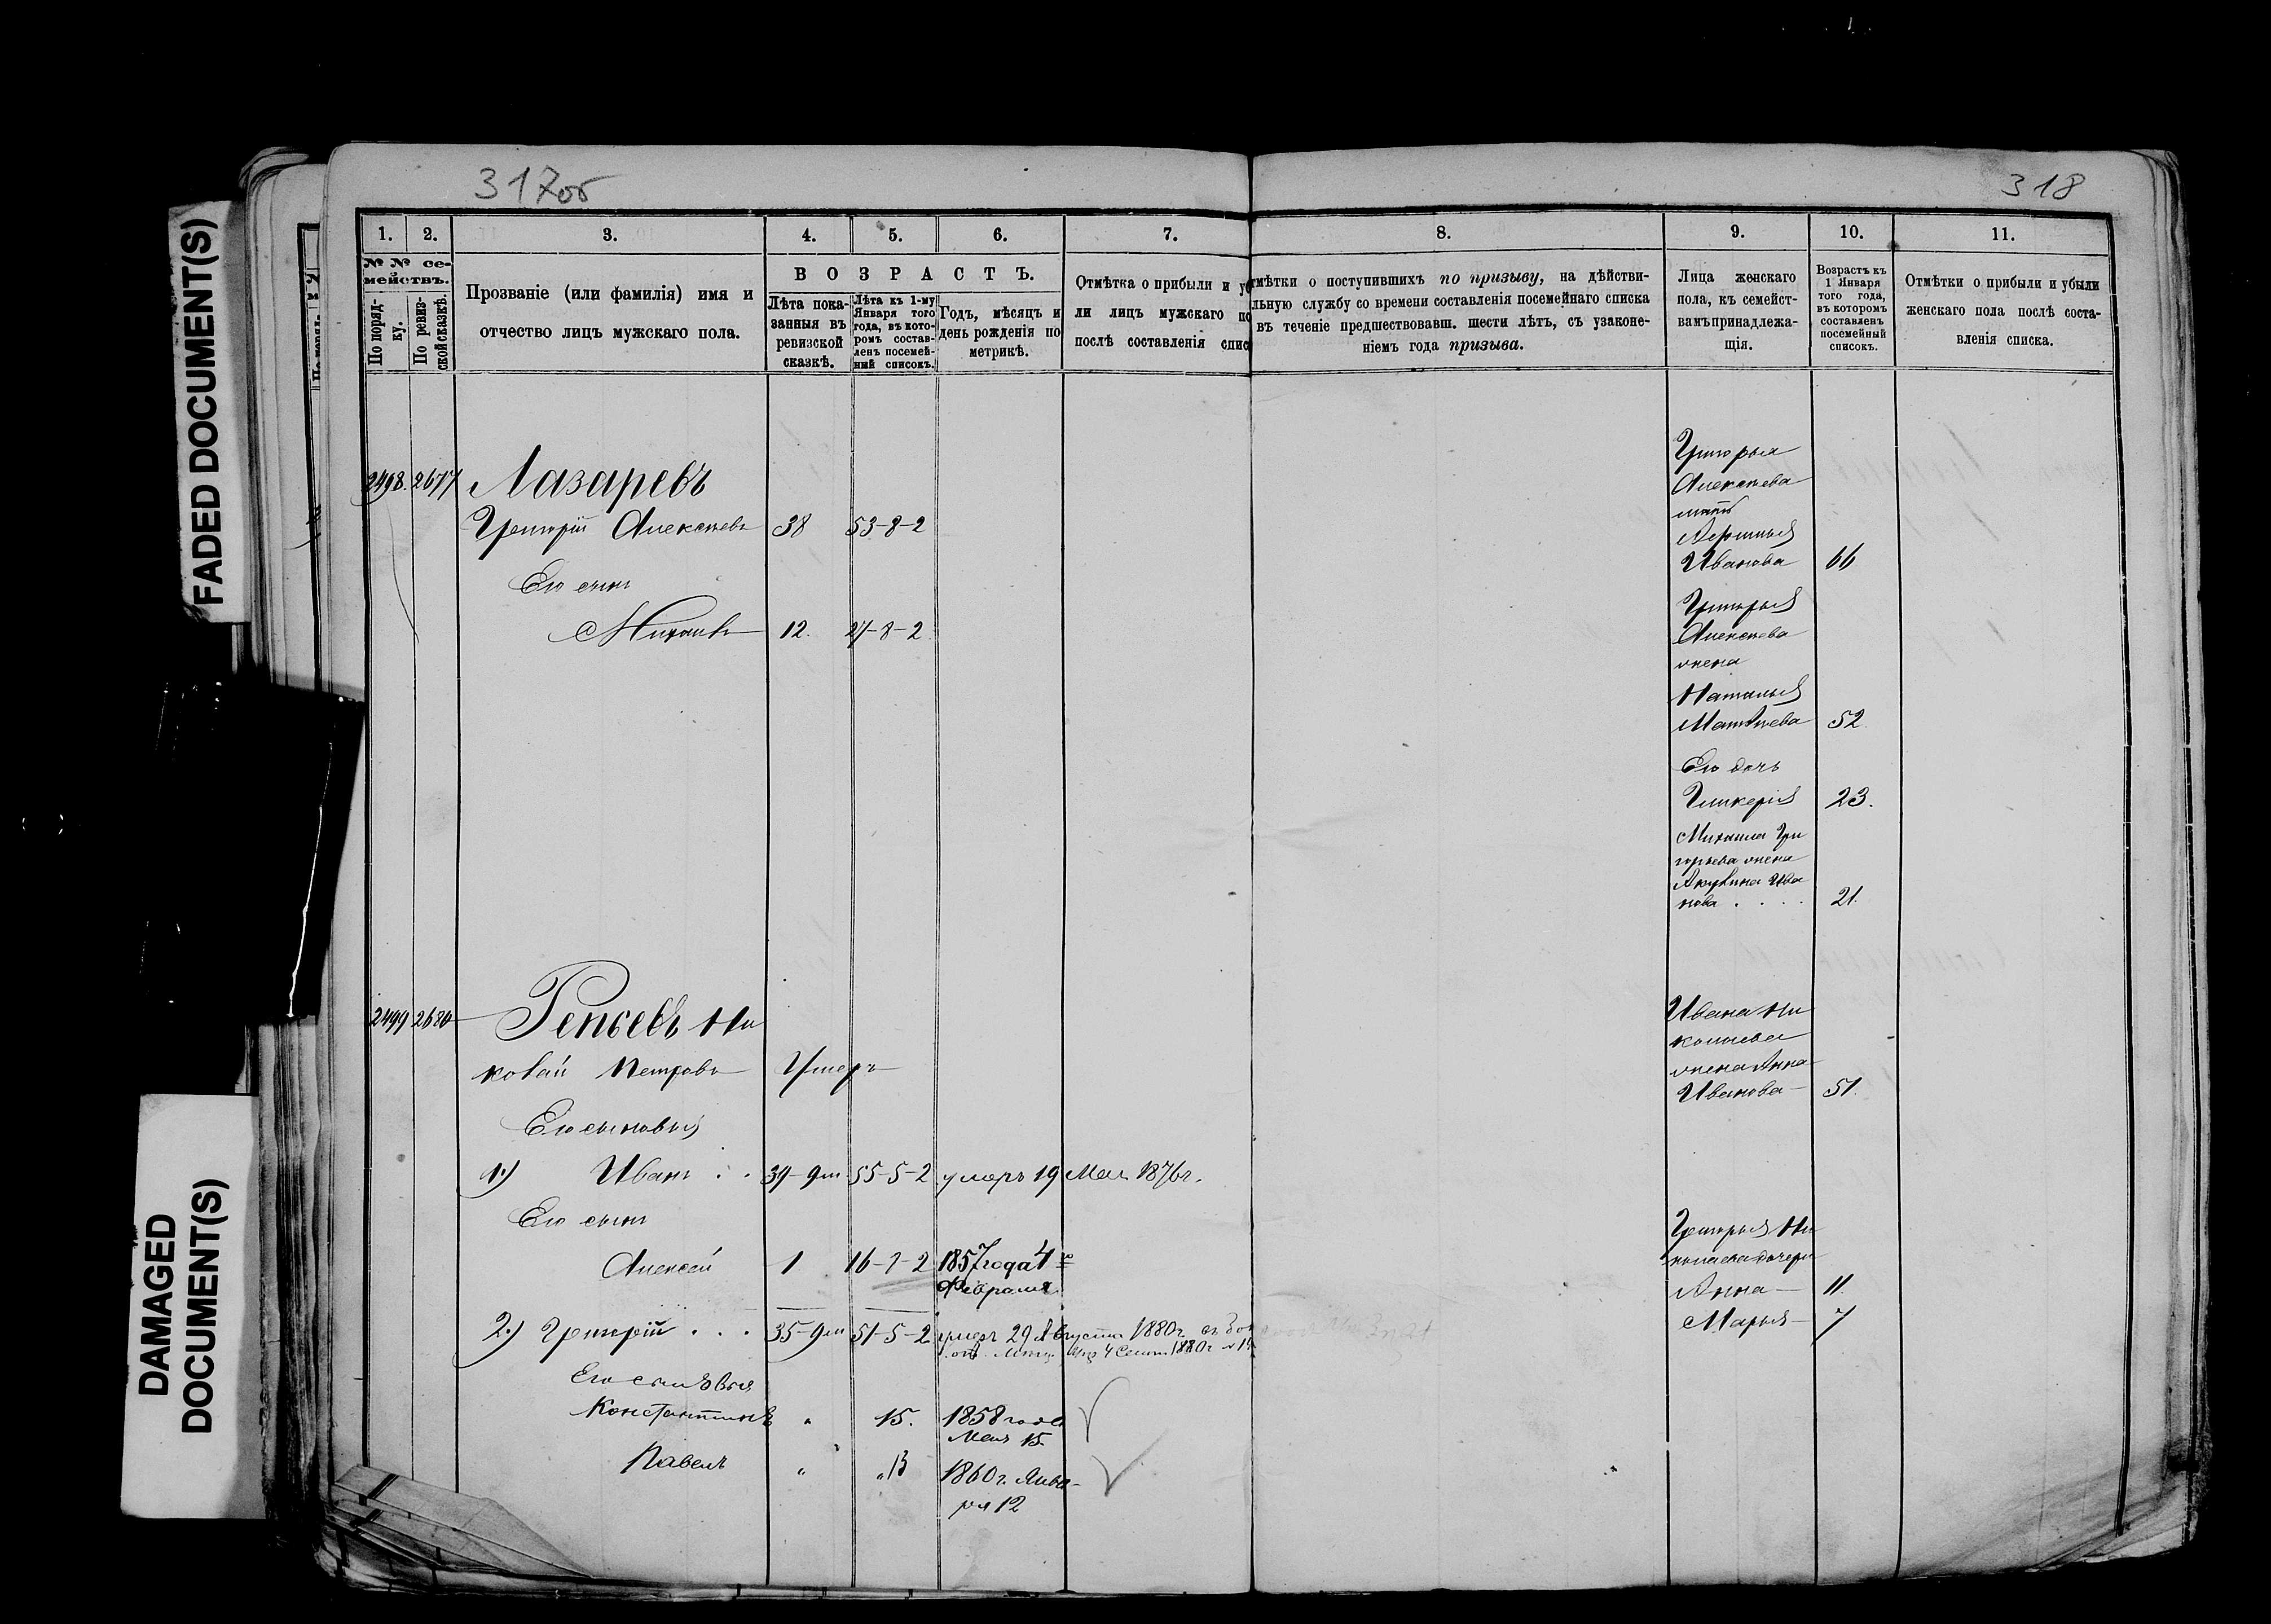 317об
318
FADED DOCUMENT(S)
DAMAGED DOCUMENT(S)
1. 2. 3. 4. 5. 6. 7. 8. 9. 10. 11.
№ № се-
мействъ.
По поряд-
ку.
По ревиз-
ской сказкѣ.
Прозваніе (или фамилія) имя и
отчество лицъ мужскаго пола.
ВОЗРАСТЪ.
Лѣта пока-
занныя въ
ревизской
сказкѣ.
Лѣта къ 1-му
Января того
года, въ кото-
ромъ состав-
ленъ посемей-
ный списокъ.
Годъ, мѣсяцъ и
день рожденія по
метрикѣ.
Отмѣтка о прибыли и уб
ли лицъ мужскаго по
послѣ составленія спис
тмѣтки о поступившихъ по призыву, на дѣйстви-
льную службу со времени составленія посемейнаго списка
въ теченіе предшествовавш. шести лѣтъ, съ узаконе-
ніемъ года призыва.
Лица женскаго
пола, къ семейст-
вамъ принадлежа-
щія.
Возрастъ къ
1 Января
того года,
въ которомъ
составленъ
посемейный
списокъ.
Отмѣтки о прибыли и убыли
женскаго пола послѣ соста-
вленія списка.
2498. 2677 Лазаревъ
Григорій Алексѣевъ 38 53-8-2
Его сынъ
Михаилъ 12. 27-8-2.
Григорья
Алексѣева
мать
Иванова 66
Григорья
Алексѣева
жена
Наталья
Матвѣева 52.
Его дочь
Гликерія 23.
Михаила Гри
горьева жена
Акулина Ива
нова . . . . 21.
2499 2680 Репьевъ Ни
колай Петровъ Умеръ
Его сыновья
1.) Иванъ . . 39-9м 55-5-2 умеръ 19 Мая 1876г.
Его сынъ
Алексѣй 1 16-7-2 1857 года 4го
Февраля
2.) Григорій . . . 35-9м 51-5-2 умеръ 29 Августа 1880г.
4 Сент. 1880г
Его сыновья
Константинъ " 15. 1858 года
Мая 15.
Павелъ " "13 1860г. Янва-
ря 12
Ивана Ни
колаева
жена Анна
Иванова 51.
Григорья Ни
колаева дочери
Анна 11.
Марья 7